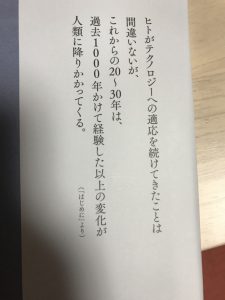 ヒトがテクノロジーへの適応を続けてきたことは
間違いないが、
これからの20〜30年は、
過去1000年かけて経験した以上の変化が
人類に降りかかってくる。
(「はじめに」より)